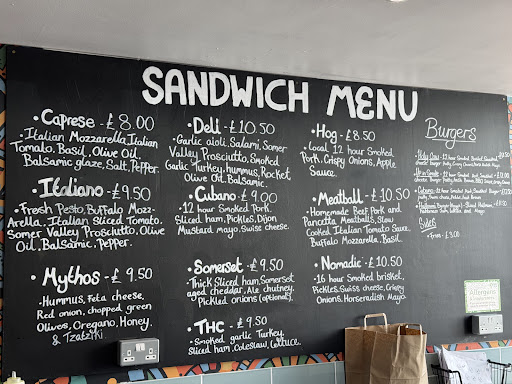 SANDWICH MENU
• Caprese - £8.00
• Italian Mozzarella, Italian
Tomato, Basil, Olive Oil,
Balsamic glaze, Salt, Pepper.
• Italiano - £9.50
• Fresh Pesto, Buffalo Mozz-
Arella, Italian Sliced Tomato.
Somer Valley Prosciutto, Olive
Oil, Balsamic, Pepper.
• Mythos - £9.50
• Hummus, Feta cheese,
Red onion, chopped green
Olives, Oregano, Honey.
& Tzatziki
• Deli - £10.50
• Garlic aioli, Salami, Somer
Valley Prosciutto, Smoked
Garlic Turkey, hummus, Rocket
Olive Oil, Balsamic.
• Cubano - £9.00
• 12 hour Smoked Pork,
Sliced ham, Pickles, Dijon
Mustard mayo, Swiss cheese.
• Somerset - £9.50
• Thick Sliced ham, Somerset
aged cheddar, Ale chutney,
Pickled onions (optional).
• THC - £9.50
• Smoked garlic Turkey,
Sliced ham, Coleslaw, Lettuce.
• Hog - £8.50
• Local, 12 hour Smoked
Pork, Crispy Onions, Apple
Sauce.
• Meatball - £10.50
• Homemade Beef, Pork and
Pancetta Meatballs, Slow
Cooked Italian Tomato Sauce,
Buffalo Mozzarella, Basil.
• Nomadic - £10.50
• 16 hour Smoked brisket,
Pickles, Swiss cheese, Crispy
Onions, Horseradish Mayo.
Burgers
• Holy Cow - 12 hour Smoked
Cubano
Sides
Fries - £3.00
Allergens